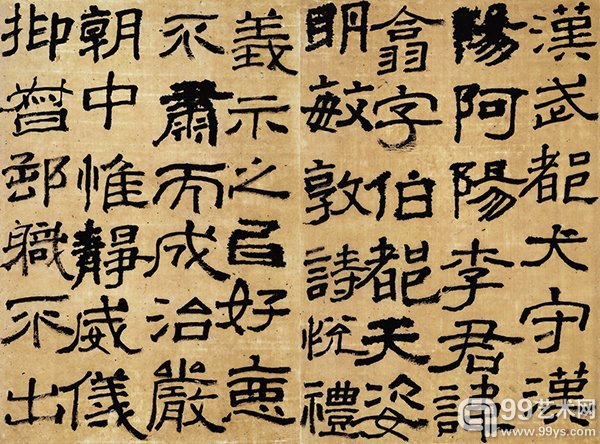 漢武都太守漢
陽阿陽李君諱
翕字伯都天姿
明敏敦詩悅禮
義示之㠯好惡
不肅而成治嚴
朝中惟靜威儀
抑督郵職不出
99艺术网
www.99ys.com